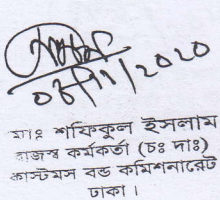 ০৪/১১/২০২০
মোঃ শফিকুল ইসলাম
রাজস্ব কর্মকর্তা (চঃ দাঃ)
কাস্টমস বন্ড কমিশনারেট
ঢাকা।